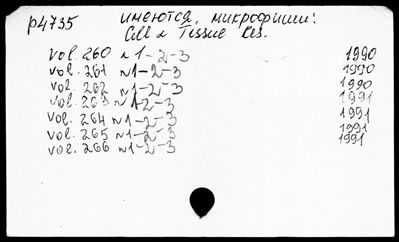 p4735 имеются микрофиши:
Cell & Tissue Res.
vol. 260 N 1-2-3 1990
vol. 261 N1-2-3 1990
vol. 262 N1-2-3 1990
vol. 263 N1-2-3 1991
vol. 264 N1-2-3 1991
vol. 265 N1-2-3 1991
vol. 266 N1-2-3 1991